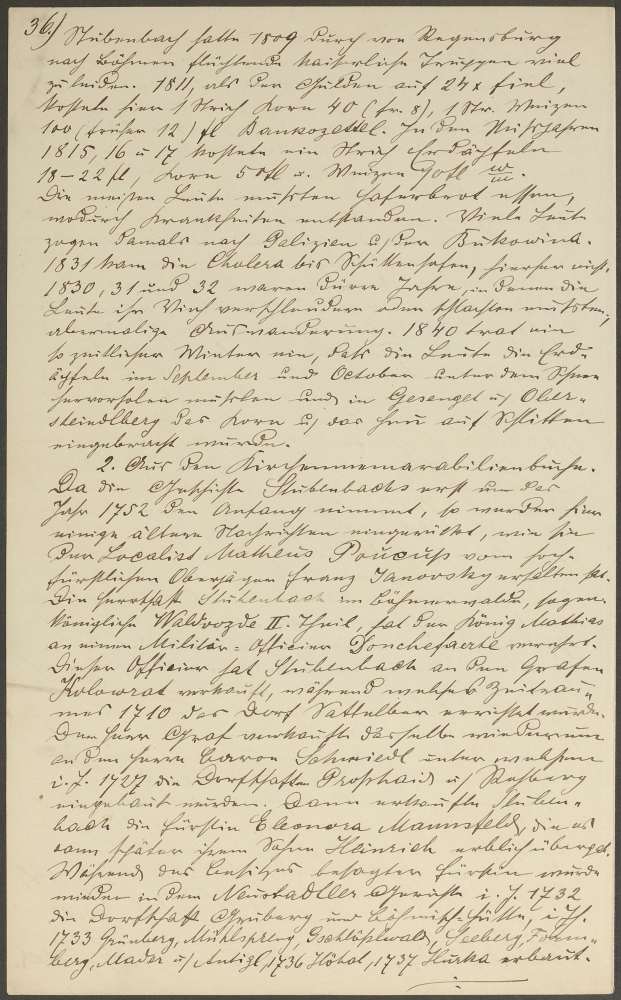 36.) Stubenbach hatte 1809 durch von Regensburg
nach Böhmen flüchtende kaiserliche Truppen viel
zu leiden. 1811, als der Gulden auf 24 x fiel,
kostete hier 1 Strich Korn 40 (fr. 8), 1 Str. Weizen
100 (früher 12) fl Bankozettel. In den Mißjahren
1815, 16 u 17 kostete ein Strich Erdäpfeln
18-22 fl, Korn 50 fl u. Weizen 90 fl
Die meisten Leute mußten Haferbrot essen,
wodurch Krankheiten entstanden. Viele Leute
zogen damals nach Galizien u/ der Bukowina.
1831 kam die Cholera bis Schüttenhofen, hierher nicht.
1830, 31 und 32 waren dürre Jahre, in denen die
Leute ihr Vieh verschleudern oder schlachten mußten;
abermalige Auswanderung. 1840 trat ein
so zeitlicher Winter ein, daß die Leute die Erd-
äpfeln im September und October unter dem Schnee
hervorholen mußten und in Gesenget u/ Ober-
steindlberg das Korn u/ das Heu auf Schlitten
eingebracht wurde.
2. Aus dem Kirchenmemarabilienbuche.
Da die Geschichte Stubenbachs erst um das
Jahr 1752 den Anfang nimmt, so werden hier
einige ältere Nachrichten eingerückt, wie sie
der Localist Matheus Pouçuss vom hoch-
fürstlichen Oberjäger Franz Janovsky erhalten hat.
Die Herrschaft Stubenbach im Böhmerwalde, sogen.
königliche Waldvozde II. Theil, hat der König Mathias
an einen Militär-Officier Donchefaerte verehrt.
Dieser Officier hat Stubenbach an den Grafen
Kolowrat verkauft, während welches Zeitrau-
mes 1710 das Dorf Sattelberg errichtet wurde.
Der Herr Graf verkaufte dasselbe wiederum
an den Herrn Baron Schmiedl unter welchem
i. J. 1727 die Dorfschaften Proschaid u/ Rehberg
eingebaut wurden. Dann erkaufte Stuben-
bach die Fürstin Eleonora Mannsfeld, die es
dann später ihrem Sohne Heinrich erblich übergab.
Während des Besitzes besagter Fürstin wurde
wieder in dem Neustadtler Gerichte i. J. 1732
die Dorfschaft Gruberg und Böhmisch-Hütte, i. J.
1733 Grünberg, Mühlspreng, Gschlößlwald, Seeberg, Fram-
berg, Mader u/ Antigl, 1736 Höhal, 1737 Hurka erbaut.